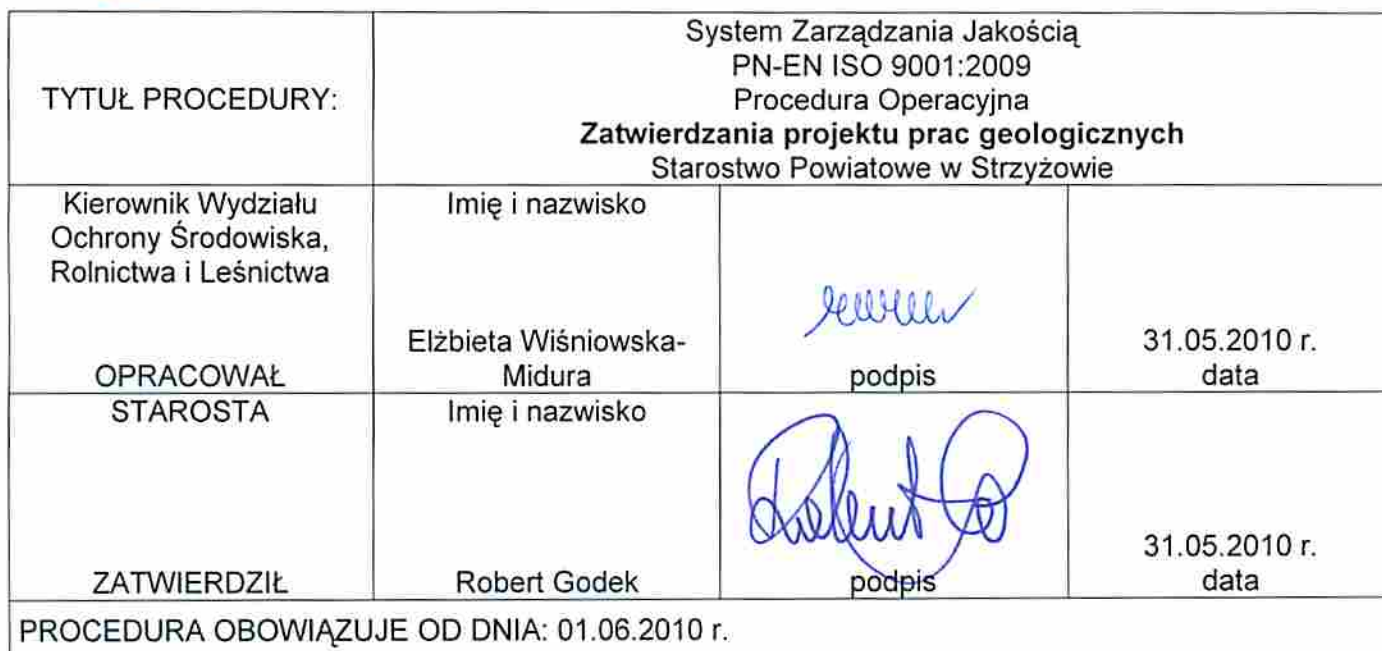 TYTUŁ PROCEDURY:
System Zarządzania Jakością
PN-EN ISO 9001:2009
Procedura Operacyjna
Zatwierdzania projektu prac geologicznych
Starostwo Powiatowe w Strzyżowie
Kierownik Wydziału
Ochrony Środowiska,
Rolnictwa i Leśnictwa
OPRACOWAŁ
Imię i nazwisko
Elżbieta Wiśniowska-
Midura
podpis
31.05.2010 r.
data
STAROSTA
ZATWIERDZIŁ
Imię i nazwisko
Robert Godek
podpis
31.05.2010 r.
data
PROCEDURA OBOWIĄZUJE OD DNIA: 01.06.2010 r.